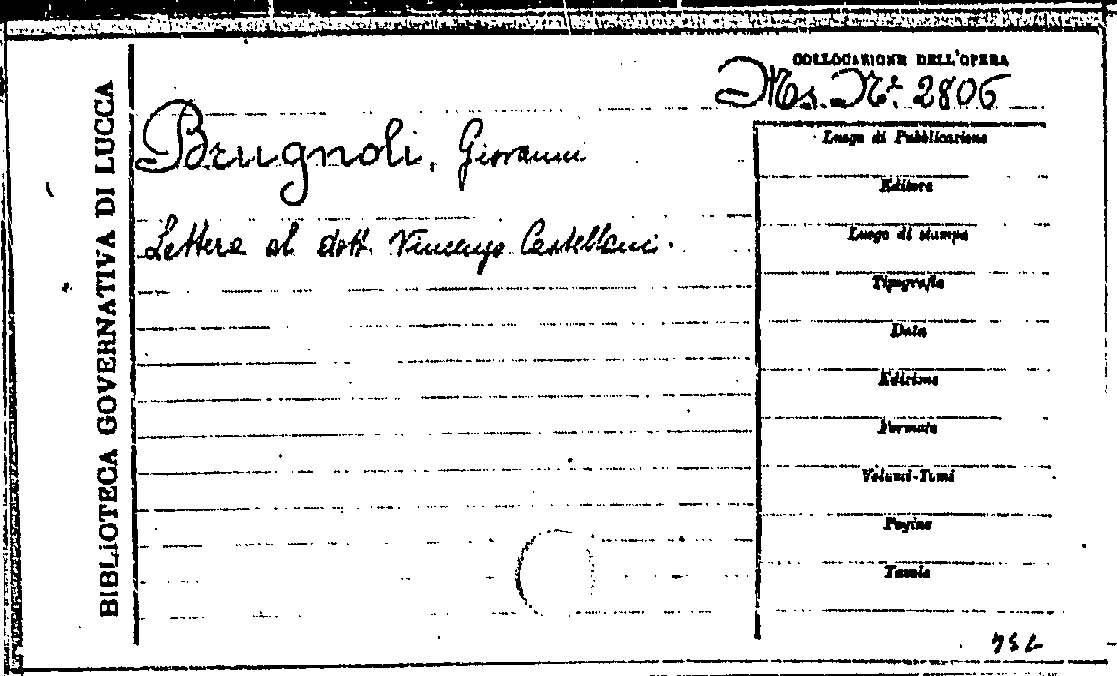 BIBLIOTECA GOVERNATIVA DI LUCCA
COLLOCAZIONE DELL'OPERA
Ms. N.º 2806
Brugnoli, Giovanni
Lettera al dott. Vincenzo Castellani.
Luogo di Pubblicazione
Editore
Luogo di stampa
Tipografia
Data
Edizione
Formato
Volumi-Tomi
Pagine
Tavole